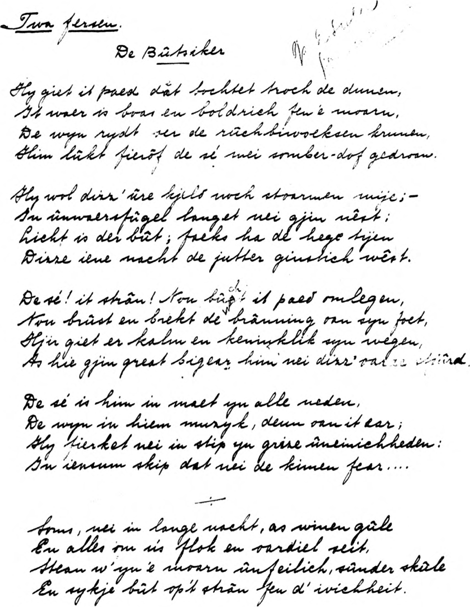 Twa fersen.
De Bûtsiker
Hy giet it paed dat bochtet troch de dunen,
It waer is boas en boldrich fen 'e moarn,
De wyn rydt oer de rûchbiwoeksen krunen,
Him lûkt fierôf de sé mei somber-dof gedroan.
Hy wol dizz' ûre kjeld noch stoarmen mije; -
In ûnwaersfûgel langet nei gjin nêst;
Licht is der bût; faeks ha de hege tijen
Dizze iene nacht de jutter giunstich wêst.
De sé! it strân! Nou bûcht it paed omlegen,
Nou brûst en brekt de brânning oan syn foet,
Hjir giet er kalm en keninklik syn wegen,
As hie gjin great bigear him nei dizz'
De sé is him in maet yn alle neden,
De wyn in hiem muzyk, deun oan it ear;
Hy tierket nei in stip yn grize ûneinichheden:
In iensum skip dat nei de kimen fear....
Soms, nei in lange nacht, as winen gûle
En alles om ús flok en oardiel seit,
Stean w' yn 'e moarn ûnfeilich, sûnder skûle
En sykje bût op't strân fen d' ivichheit.